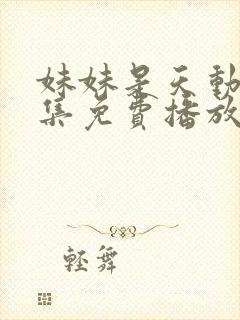 妹妹是天動
集免費播放
輕舞